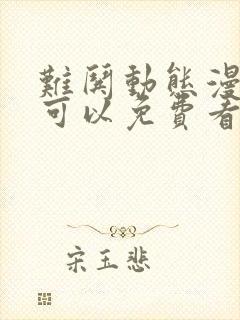 難鬩動態漫
可以免費看
宋玉悲